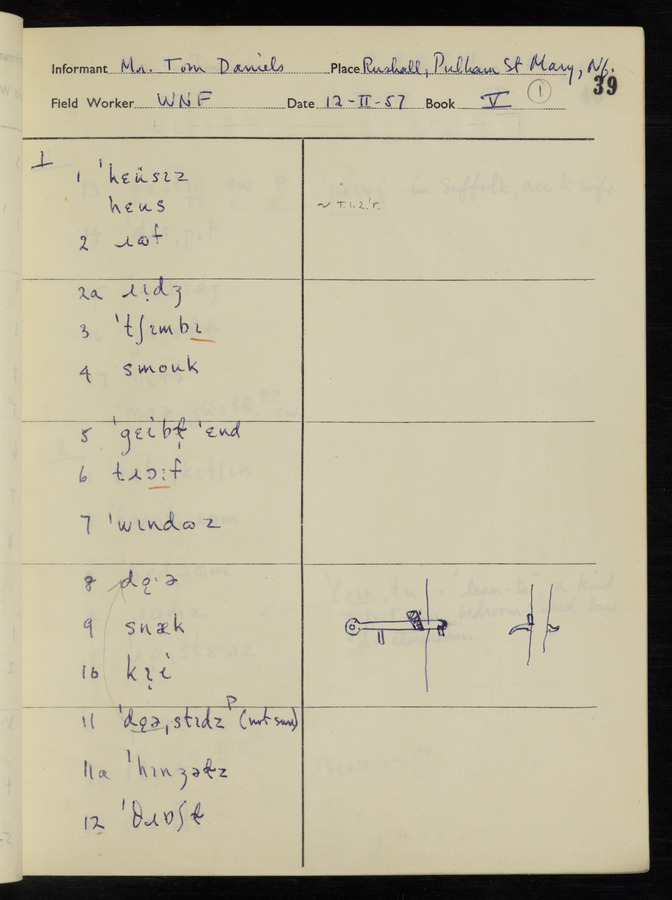 Informant Mr. Tom Daniels Place Rushall, Pulham St Mary, Nf.
39
Field Worker WNF Date 12-II-57 Book V 1
I
1 ˈhɛüsɪz
hɛus
~ T.1.2.'r.
2 ɹɷf
2a ɹɪ̣dʒ
3 ˈtʃɪmbɪ
4 smouk
5 ˈgɛibɫ̩ ˈɛnd
6 tɹɔ:f
7 ˈwɪndɷz
8 dę·ə
9 snæk
10 kɪ̣i
11 ˈdęə,stɪdz P (not sure)
11a ˈhɪnʒəɫz
12 ˈθɹɒʃɫ